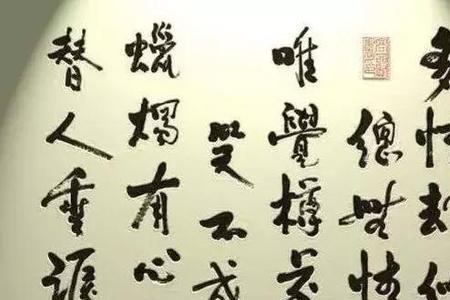 多情却似
總無情
唯覺樽前
笑不成
蠟燭有心
替人垂淚